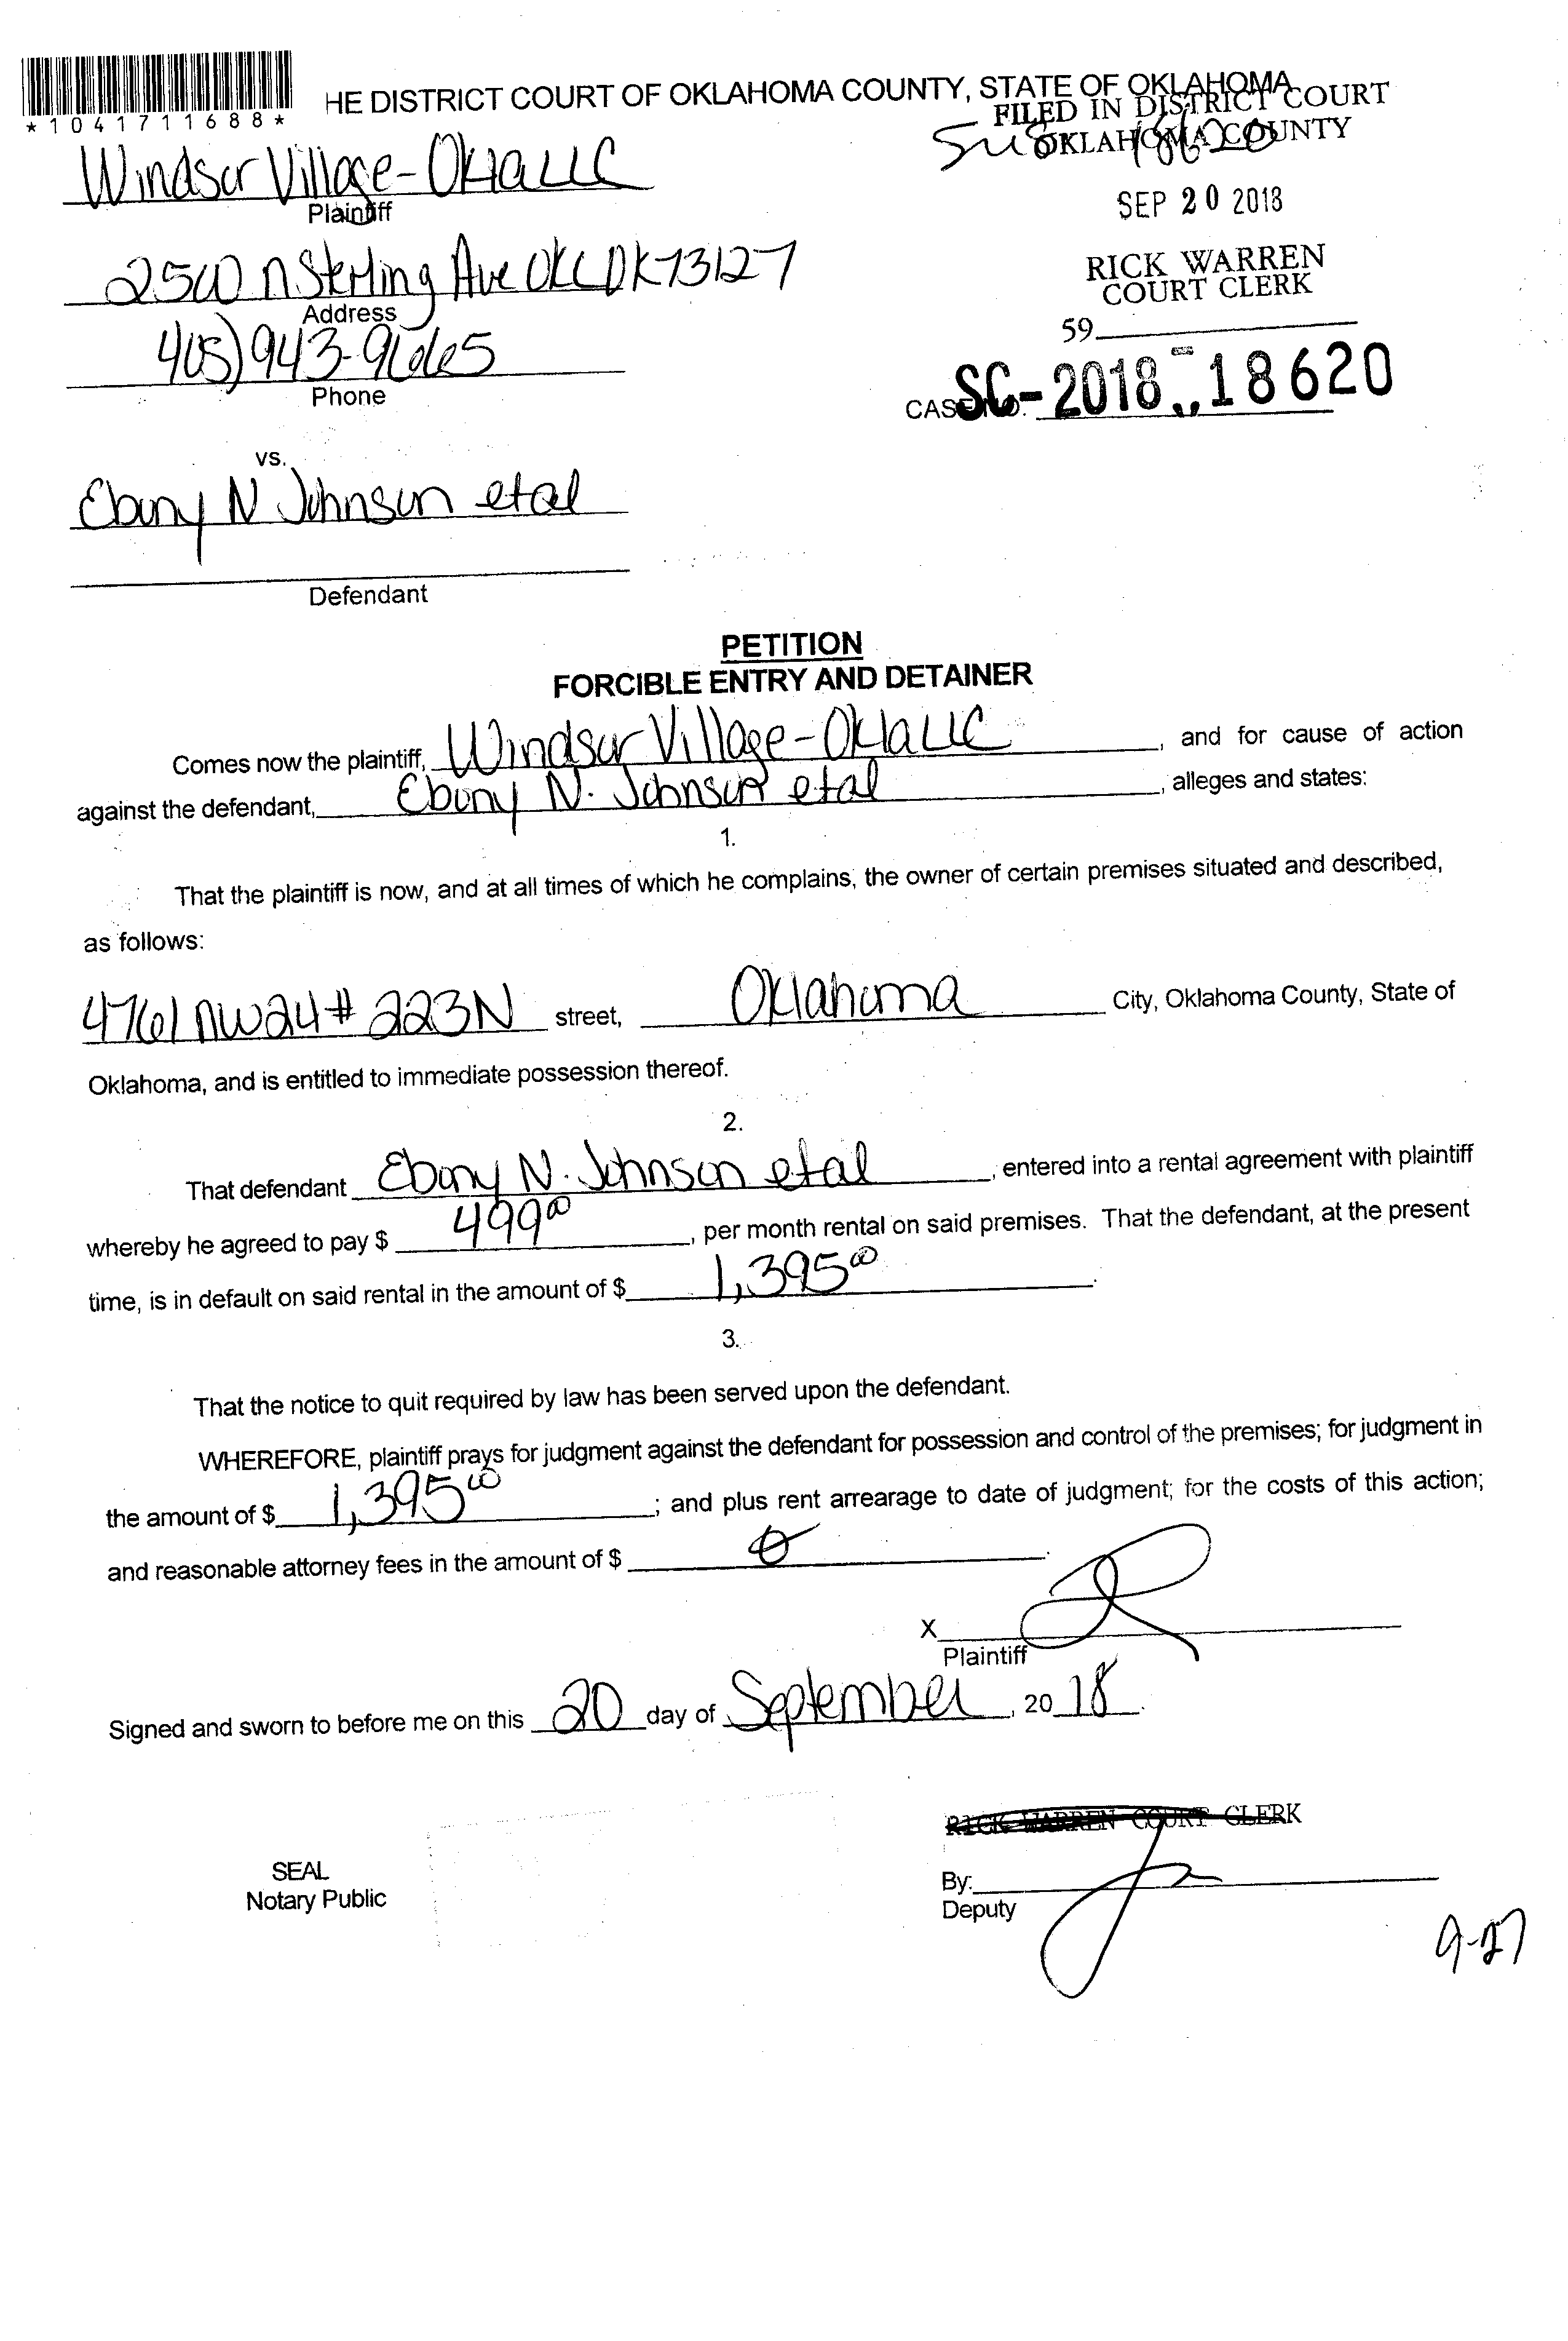 *1041711688*
HE DISTRICT COURT OF OKLAHOMA COUNTY, STATE OF OKLAHOMA
FILED IN DISTRICT COURT
OKLAHOMA COUNTY
Windsor Village-Okla LLC
Plaintiff
SEP 20 2018
2500 N Sterling Ave OKC OK 73127
Address
RICK WARREN
COURT CLERK
405) 943-9665
Phone
59
CASE NO. SC-2018-18620
vs.
Ebony N Johnson etal
Defendant
PETITION
FORCIBLE ENTRY AND DETAINER
Comes now the plaintiff, Windsor Village-Okla LLC, and for cause of action
against the defendant, Ebony N. Johnson etal, alleges and states:
1.
That the plaintiff is now, and at all times of which he complains, the owner of certain premises situated and described,
as follows:
4761 NW 24 # 223N street, Oklahoma City, Oklahoma County, State of
Oklahoma, and is entitled to immediate possession thereof.
2.
That defendant Ebony N. Johnson etal, entered into a rental agreement with plaintiff
whereby he agreed to pay $ 499 00, per month rental on said premises. That the defendant, at the present
time, is in default on said rental in the amount of $ 1,395 00.
3.
That the notice to quit required by law has been served upon the defendant.
WHEREFORE, plaintiff prays for judgment against the defendant for possession and control of the premises; for judgment in
the amount of $ 1,395 00; and plus rent arrearage to date of judgment; for the costs of this action;
and reasonable attorney fees in the amount of $ 0.
X
Plaintiff
Signed and sworn to before me on this 20 day of September, 20 18.
RICK WARREN COURT CLERK
SEAL
Notary Public
By:
Deputy
9-27